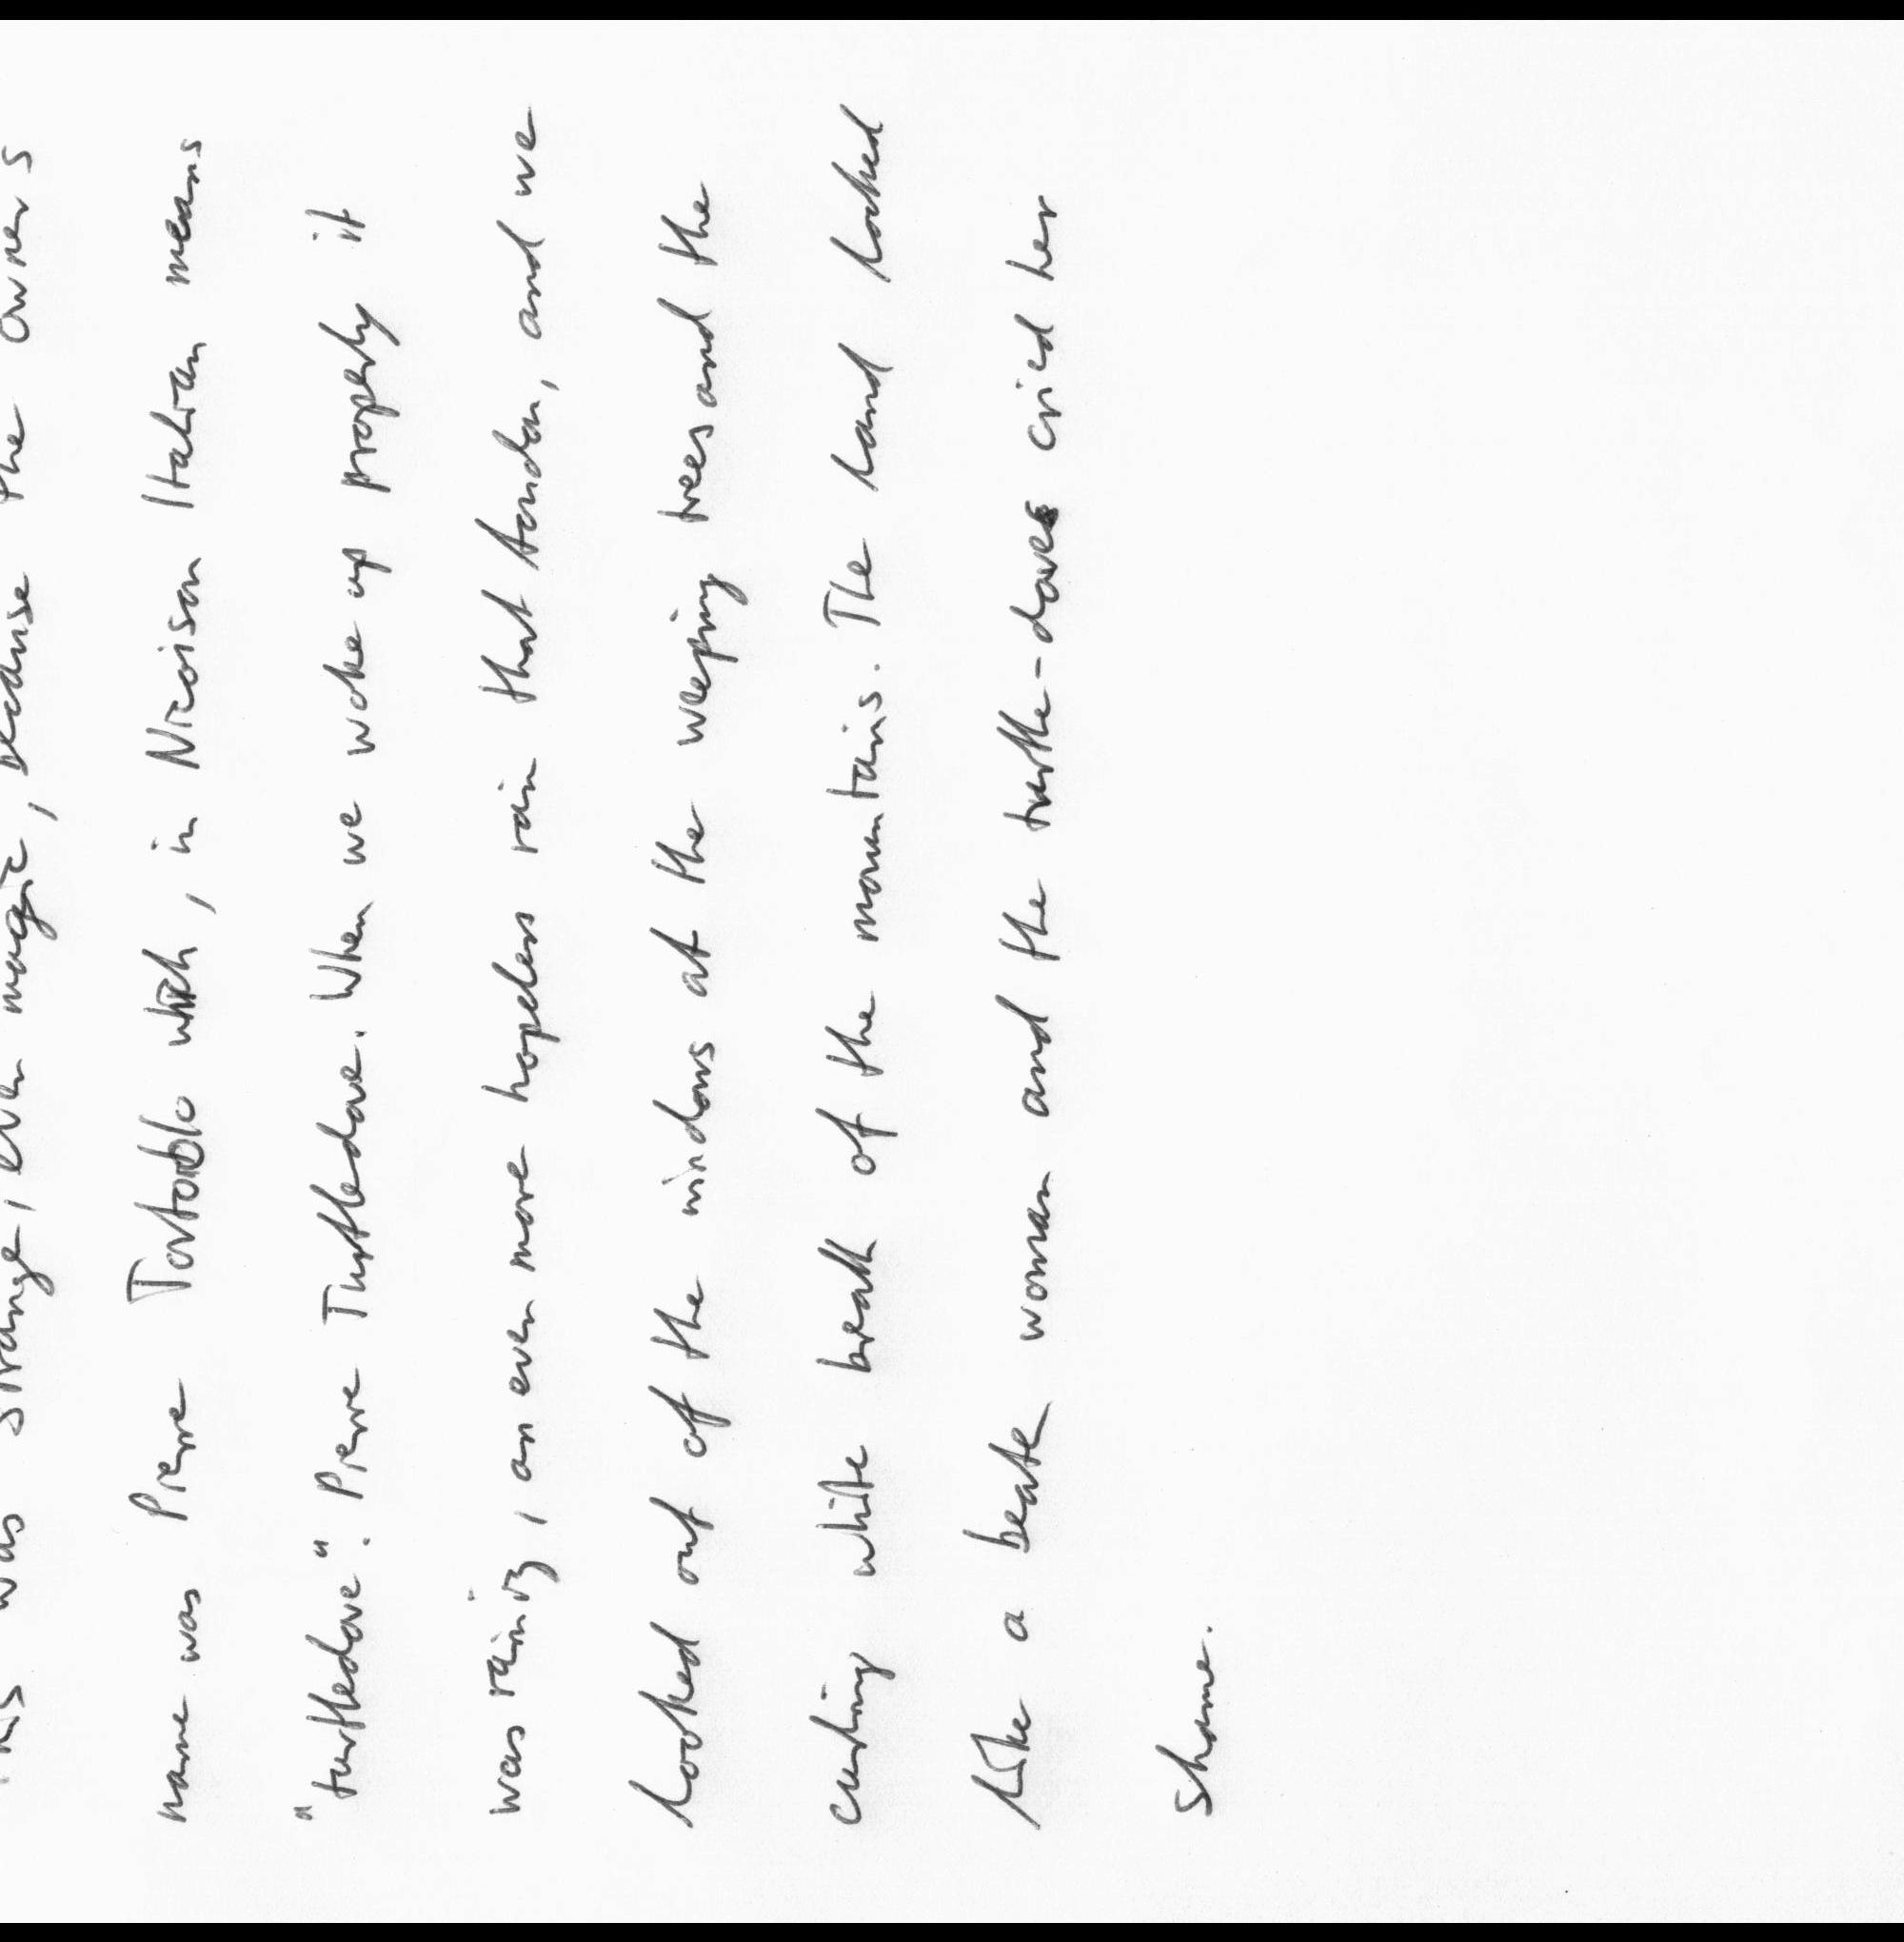 was strange, even magic, because the owner's
name was Pierre Tortoblo which, in Nicoison Italian means
"turtledove". Pierre Turtledove. When we woke up properly it
was raining, an even more hopeless rain that London, and we
looked out of the windows at the weeping trees and the
curling white breath of the mountains. The land looked
like a beaten woman and the turtle-doves cried her
shame.